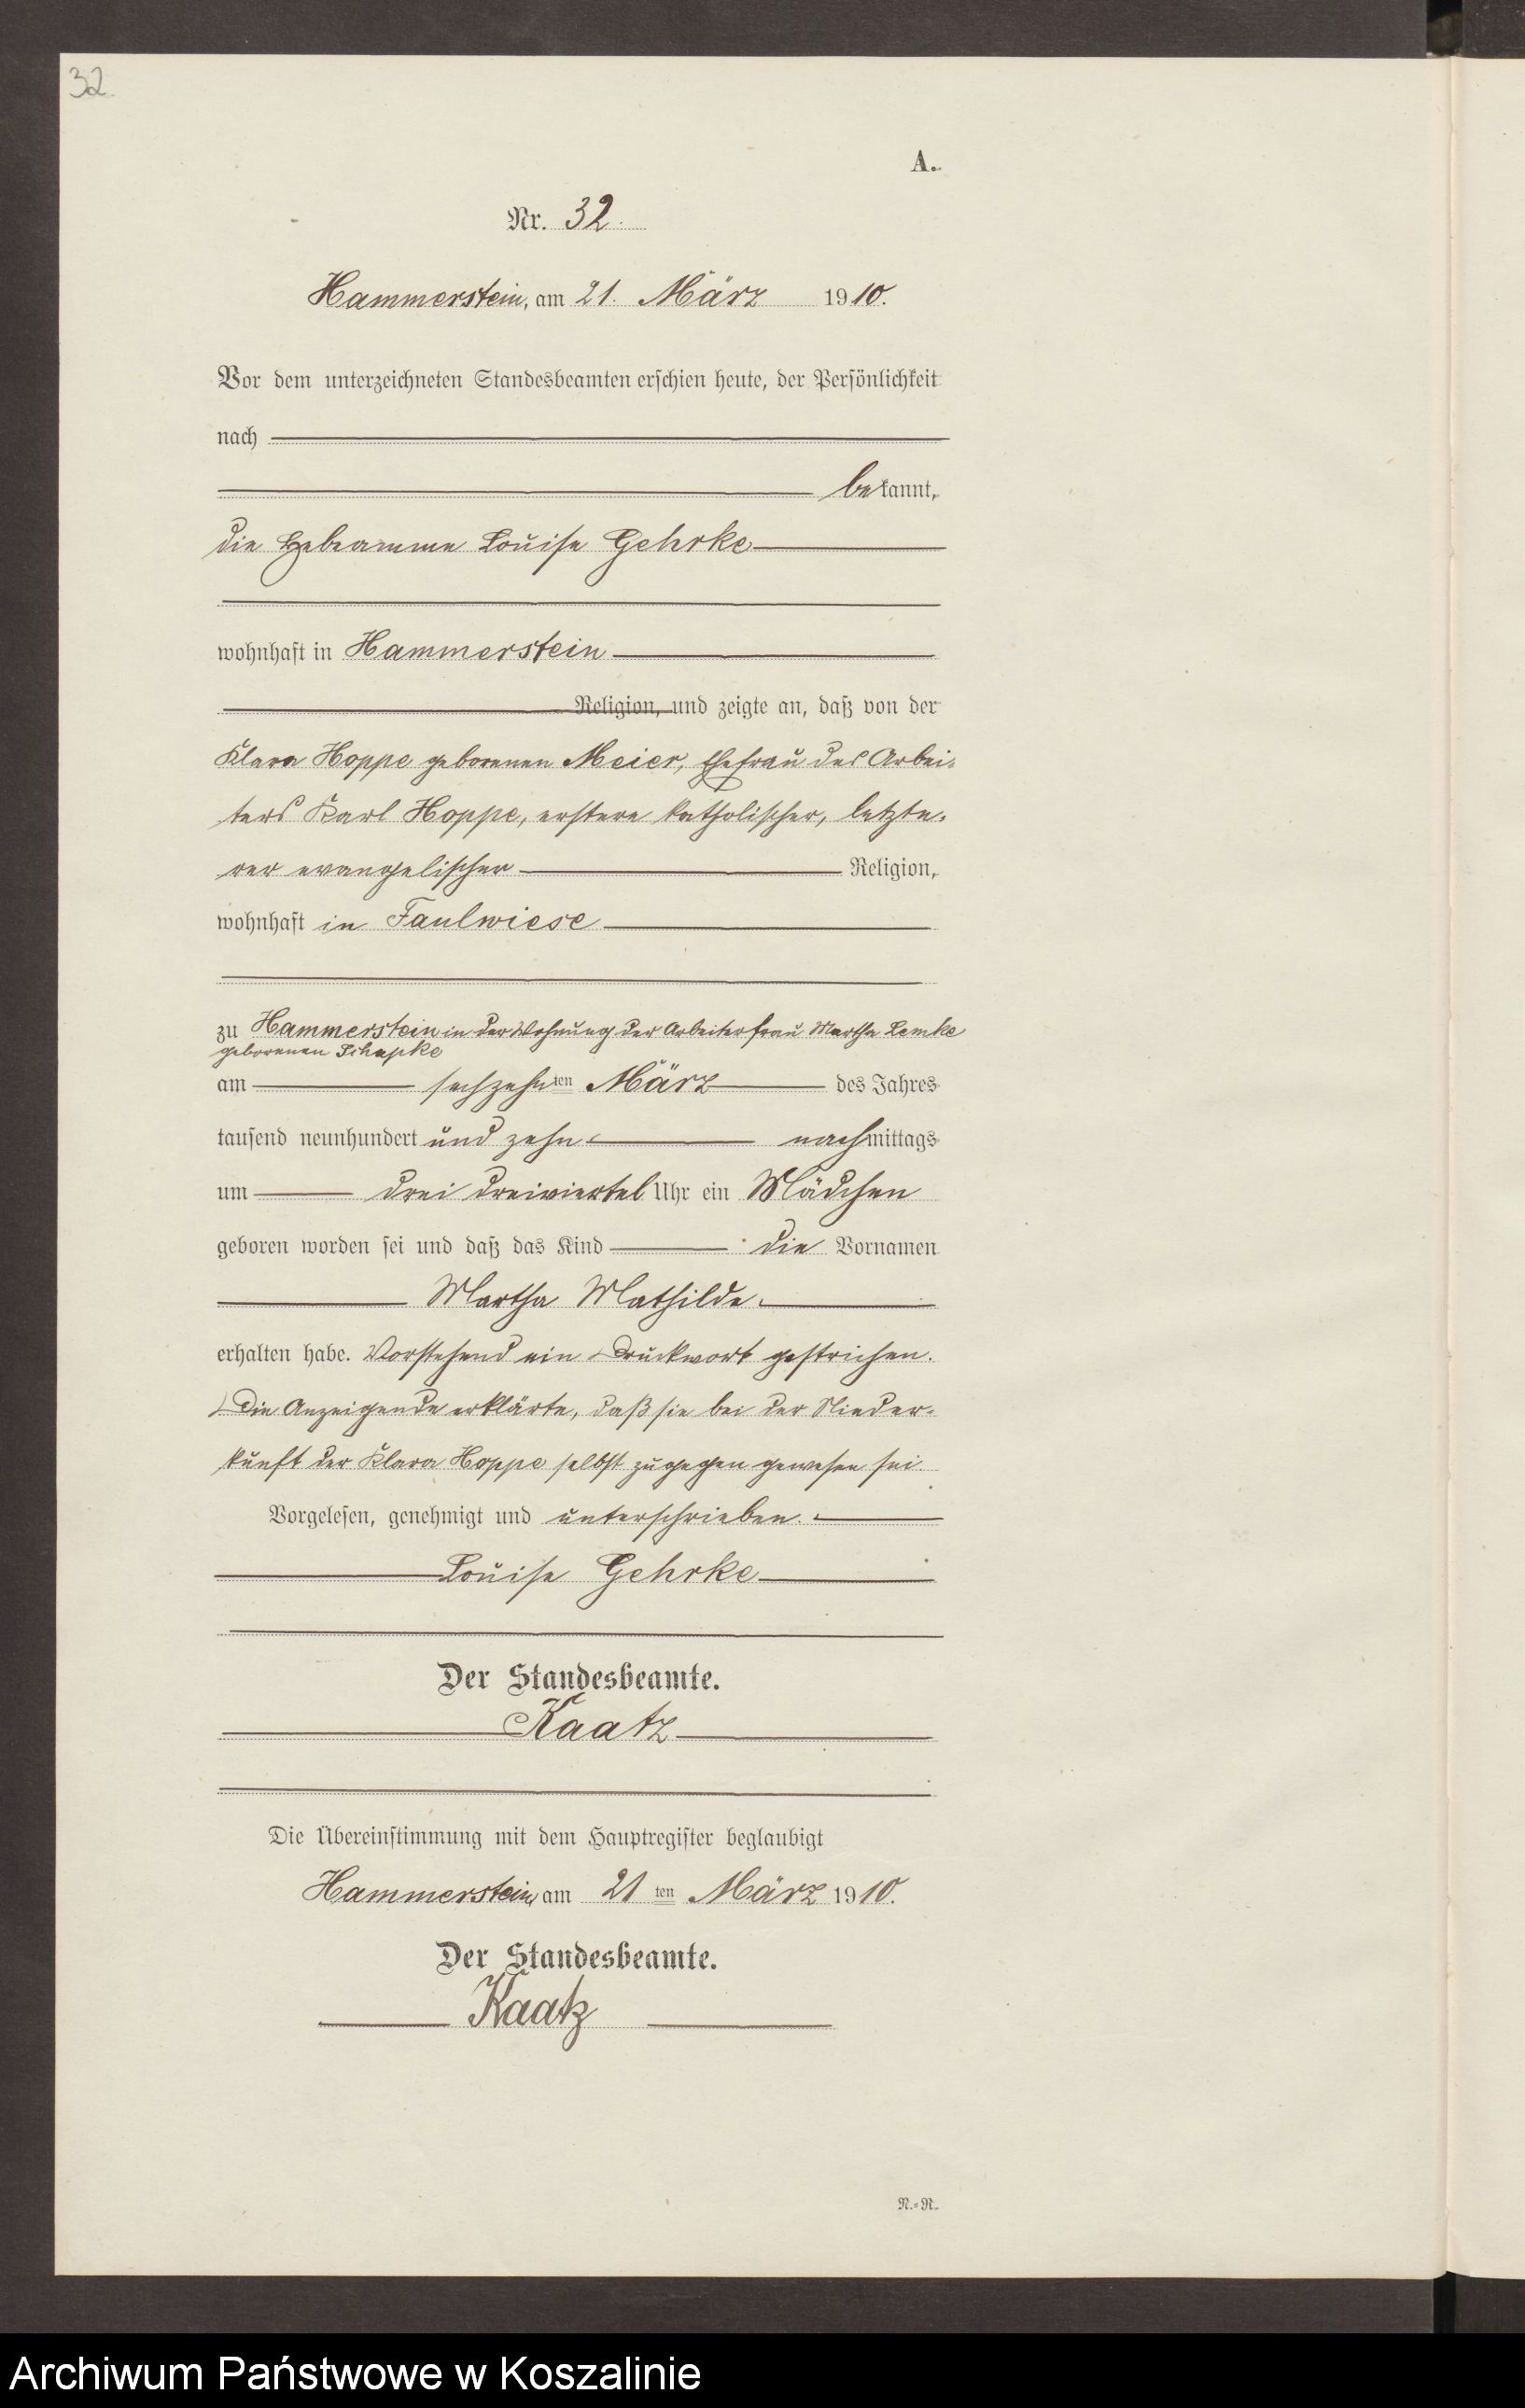 32
A.
Nr. 32.
Hammerstein, am 21. März 1910.
Vor dem unterzeichneten Standesbeamten erschien heute, der Persönlichkeit
nach
bekannt,
die Hebeamme Louise Gehrke
wohnhaft in Hammerstein
Religion, und zeigte an, daß von der
Klara Hoppe geborenen Meier, Ehefrau des Arbei-
ters Karl Hoppe, erstere katholischer, letzte-
rer evangelischer Religion,
wohnhaft in Faulwiese
zu Hammerstein in der Wohnung der Arbeiterfrau Martha Lemke
geborenen Schapke
am sechzehnten März des Jahres
tausend neunhundert und zehn nachmittags
um drei dreiviertel Uhr ein Mädchen
geboren worden sei und daß das Kind die Vornamen
Martha Mathilde
erhalten habe. Vorstehend ein Druckwort gestrichen.
Die Anzeigende erklärte, daß sie bei der Nieder-
kunft der Klara Hoppe selbst zugegen gewesen sei.
Vorgelesen, genehmigt und unterschrieben.
Louise Gehrke
Der Standesbeamte.
Kaatz
Die Übereinstimmung mit dem Hauptregister beglaubigt
Hammerstein, am 21ten März 1910.
Der Standesbeamte.
Kaatz
N.=R.
Archiwum Państwowe w Koszalinie